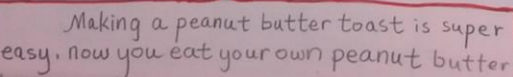 Making a peanut butter toast is super
easy. now you eat your own peanut butter